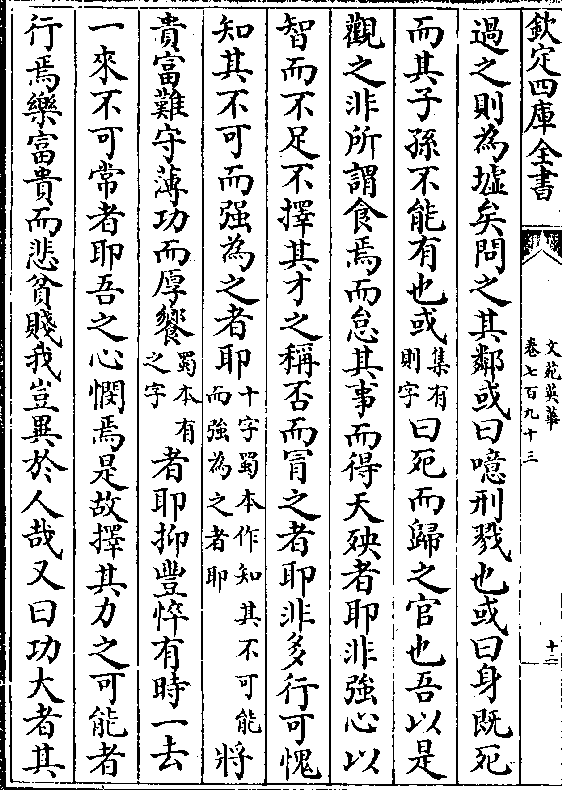 欽定四庫全書
文苑英華
卷七百九十三
十二
過之則為墟矣問之其鄰或曰噫刑戮也或曰身既死
而其子孫不能有也或集有則字曰死而歸之官也吾以是
觀之非所謂食焉而怠其事而得天殃者耶非強心以
智而不足不擇其才之稱否而冐之者耶非多行可愧
知其不可而强為之者耶十字蜀本作知其不可能而強為之者耶將
貴富難守薄功而厚饗蜀本有之字者耶抑豐悴有時一去
一來不可常者耶吾之心憫焉是故擇其力之可能者
行焉樂富貴而悲貧賤我豈異於人哉又曰功大者其